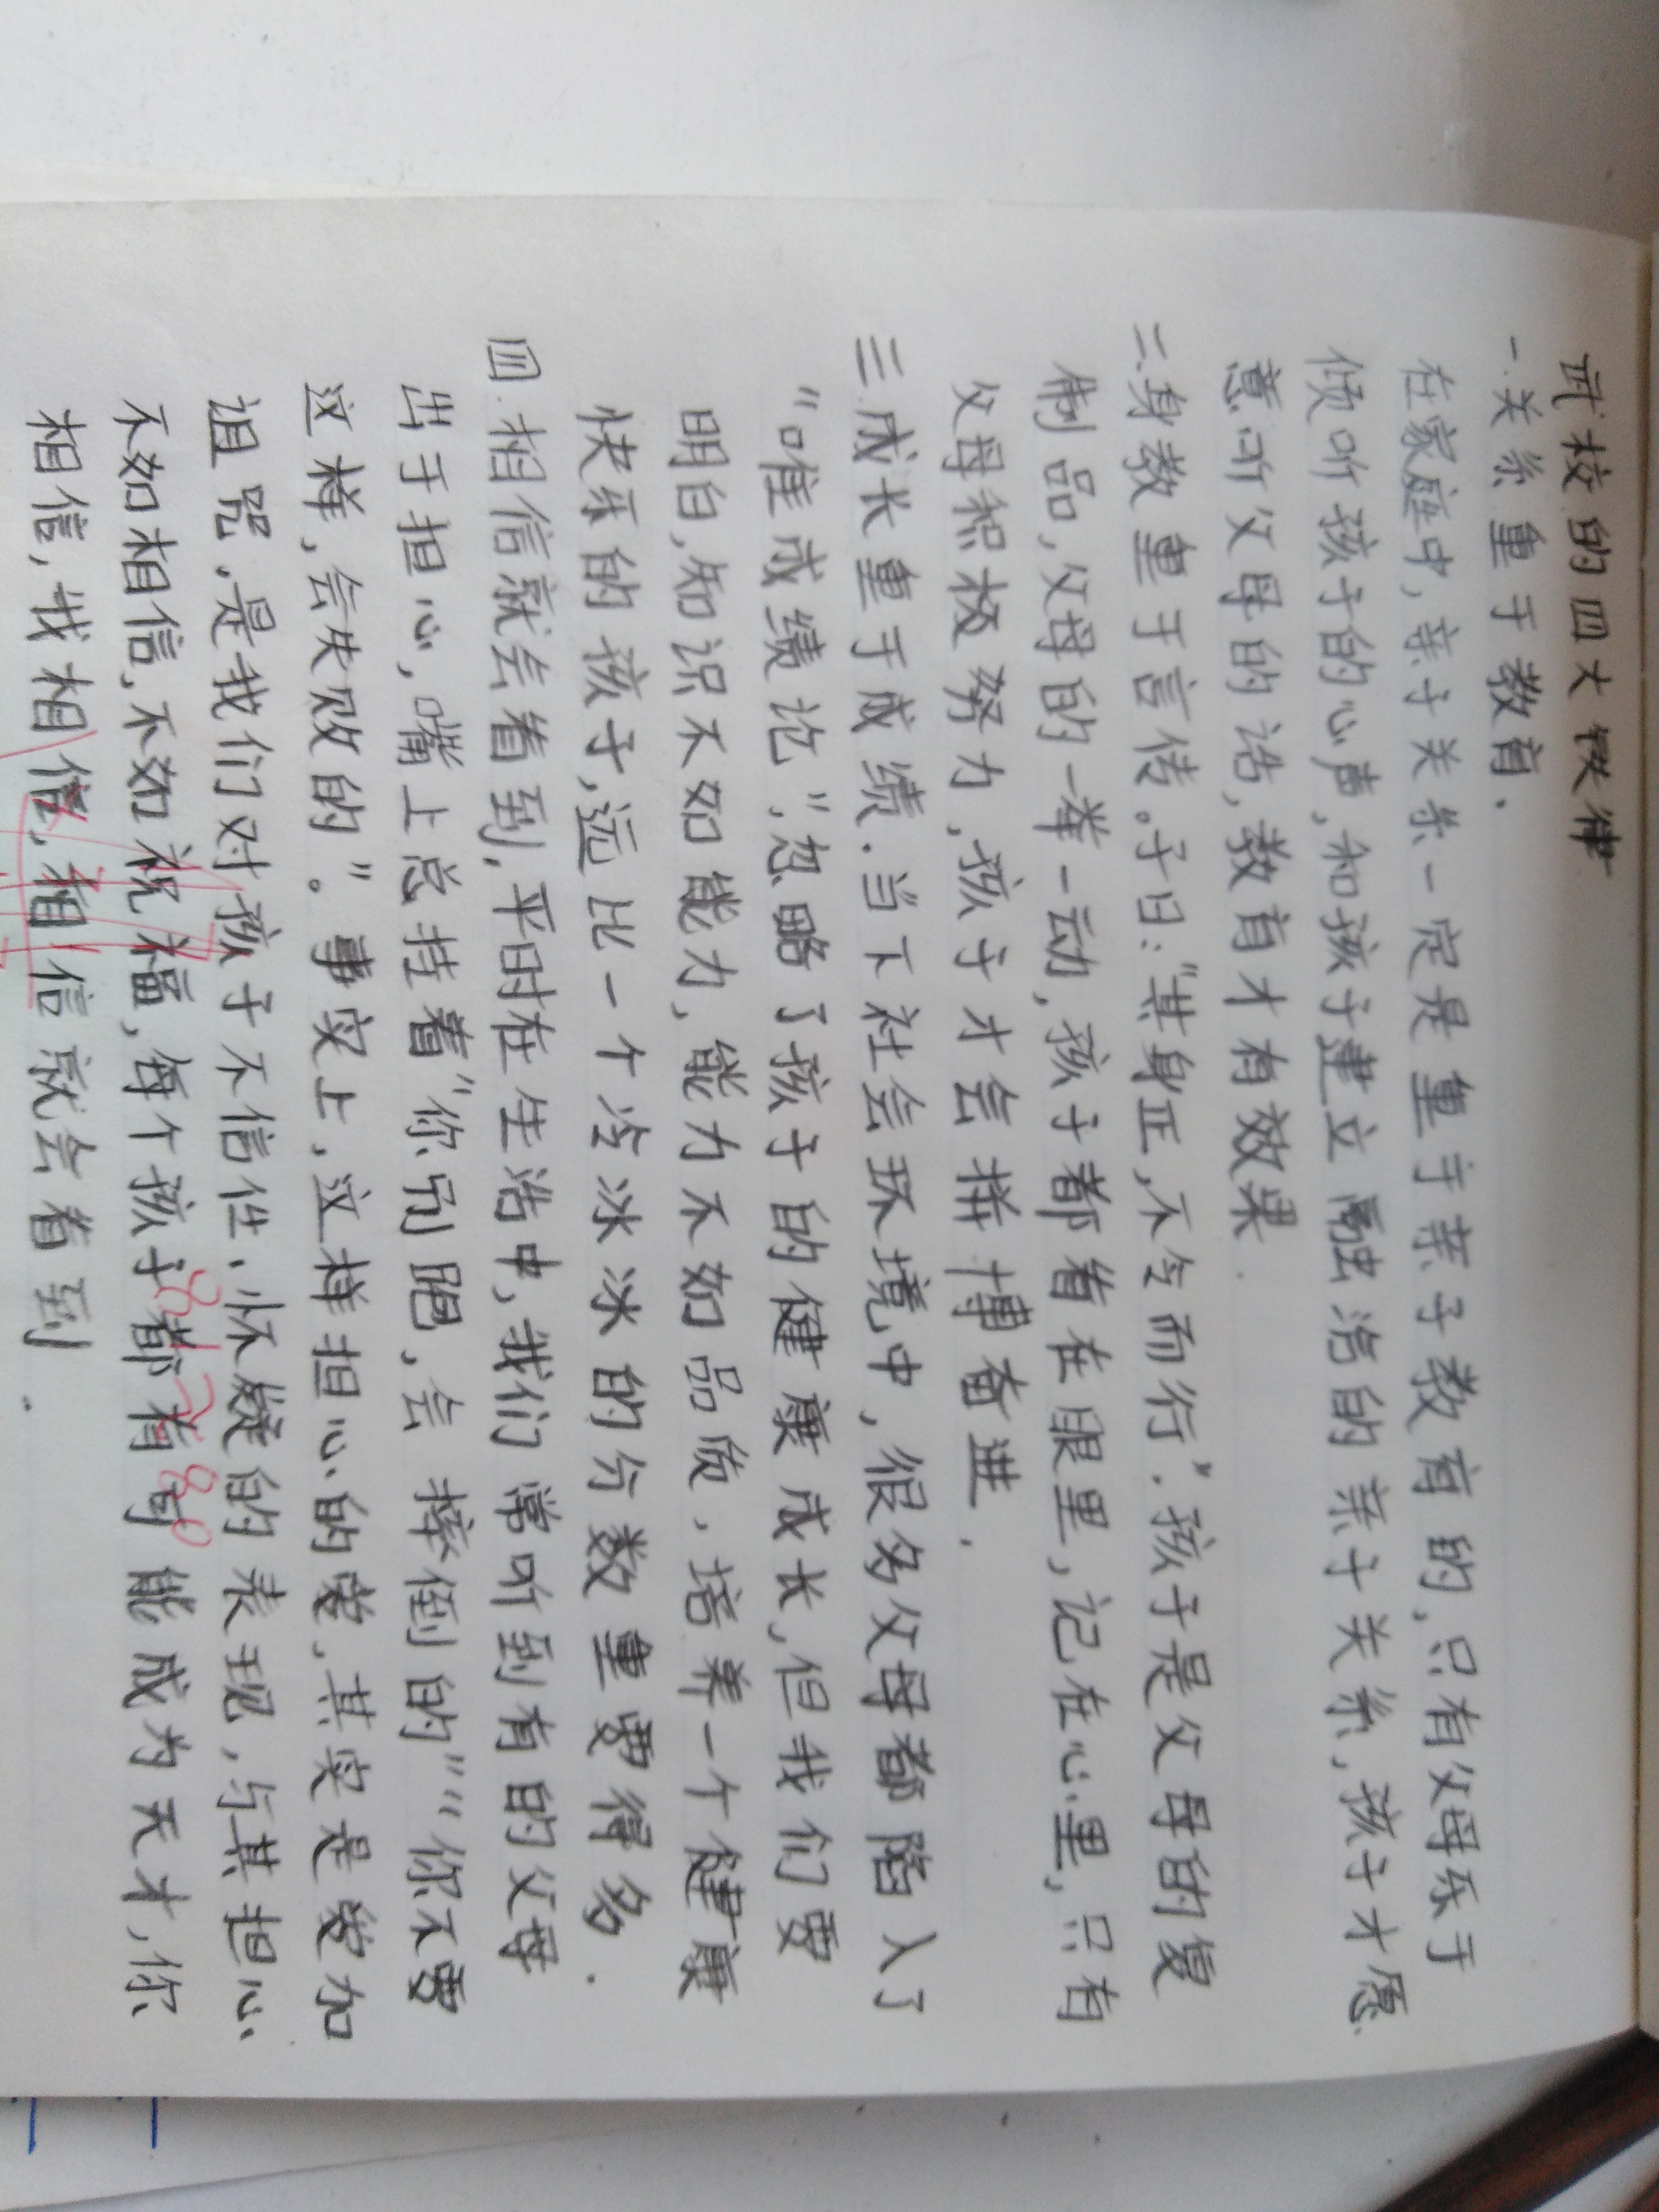 武校的四大铁律
一.关系重于教育.
在家庭中,亲子关系一定是重于亲子教育的,只有父母乐于
倾听孩子的心声,和孩子建立融洽的亲子关系,孩子才愿
意听父母的话,教育才有效果.
二.身教重于言传。子曰:“其身正,不令而行”.孩子是父母的复
制品,父母的一举一动,孩子都看在眼里,记在心里,只有
父母积极努力,孩子才会拼搏奋进.
三.成长重于成绩.当下社会环境中,很多父母都陷入了
“唯成绩论”,忽略了孩子的健康成长,但我们要
明白,知识不如能力,能力不如品质,培养一个健康
快乐的孩子,远比一个冷冰冰的分数重要得多.
四.相信就会看到,平时在生活中,我们常听到有的父母
出于担心,嘴上总挂着“你别跑,会摔倒的”“你不要
这样,会失败的”。事实上,这样担心的爱,其实是爱加
诅咒,是我们对孩子不信任、怀疑的表现,与其担心、
不如相信,不如祝福,每个孩子都有可能成为天才,你
相信,我相信,相信就会看到.